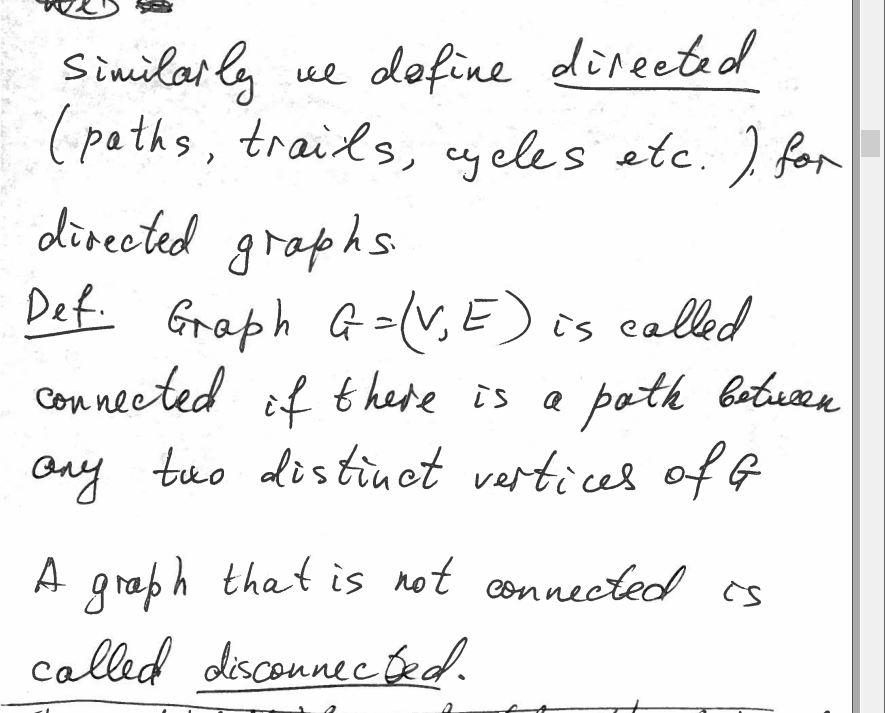 Similarly we define directed
(paths, trails, cycles etc.), for
directed graphs.
Def. Graph G=(V, E) is called
connected if there is a path between
any two distinct vertices of G
A graph that is not connected is
called disconnected.